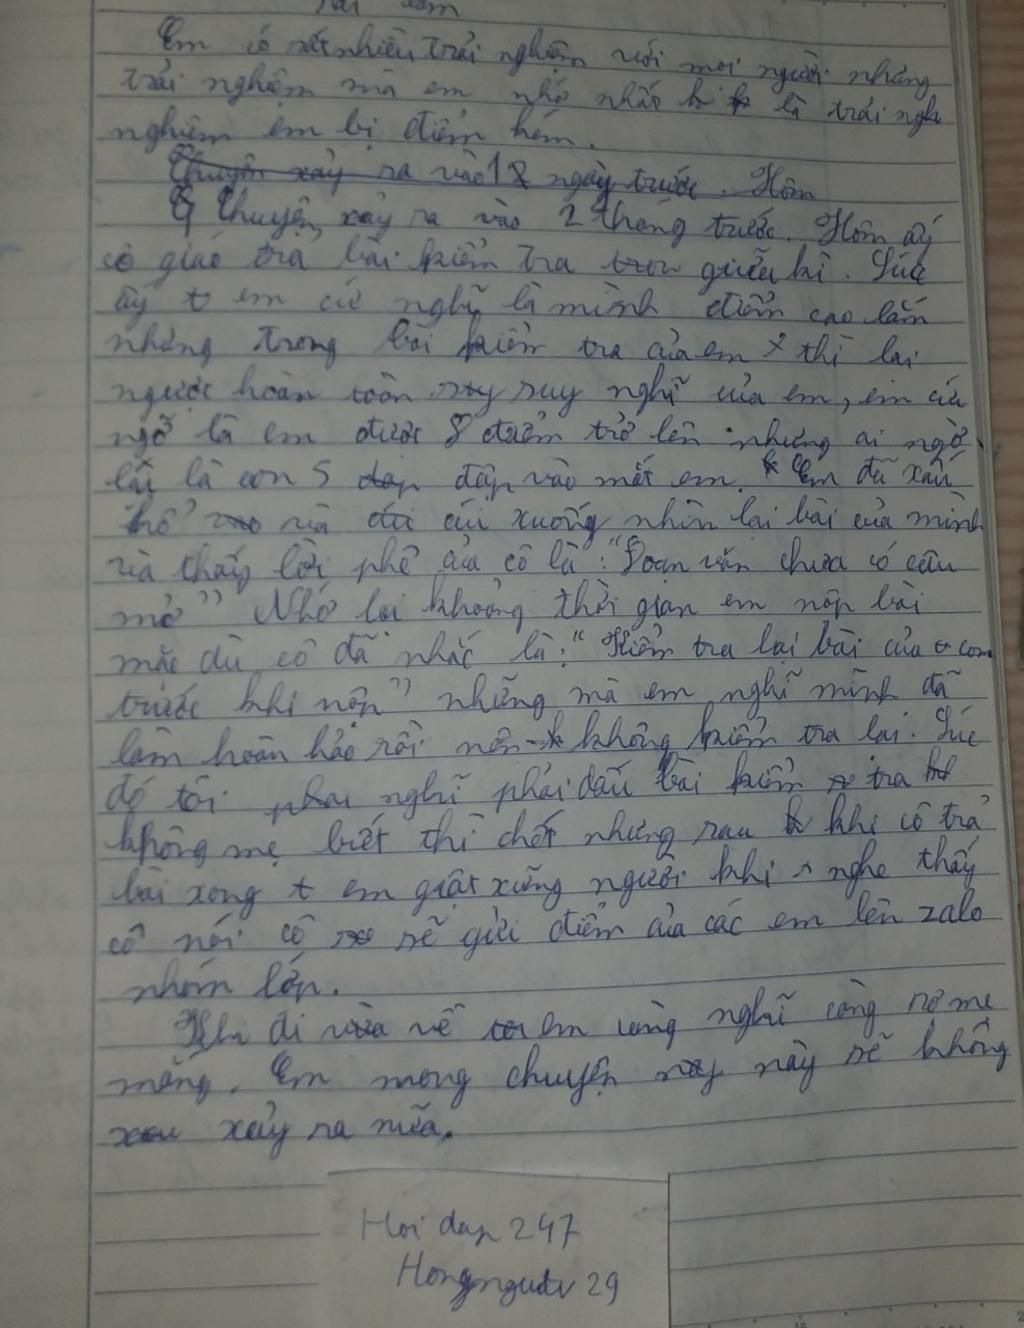 Bài làm
Em có rất nhiều trải nghiệm với mọi người nhưng
trải nghiệm mà em nhớ nhất là trải ngh
nghiệm em bị điểm kém.
Chuyện xảy ra vào 12 ngày trước. Hôm
Chuyện xảy ra vào 2 tháng trước. Hôm ấy
cô giáo trả bài kiểm tra giữa kì. Lúc
ấy t em cứ nghĩ là mình điểm cao lắm
nhưng trong bài kiểm tra của em thì lại
ngược hoàn toàn suy nghĩ của em, em cứ
ngỡ là em được 8 điểm trở lên nhưng ai ngờ
lại là con 5 đập vào mắt em. Em đã xấu
hổ và cúi xuống nhìn lại bài của mình
và thấy lời phê của cô là: "Đoạn văn chưa có câu
mở" Nhớ lại khoảng thời gian em nộp bài
mặc dù cô đã nhắc là: "Kiểm tra lại bài của con
trước khi nộp" nhưng mà em nghĩ mình đã
làm hoàn hảo rồi nên không kiểm tra lại. Lúc
đó tôi nghĩ phải dấu bài kiểm tra
không mẹ biết thì chết nhưng sau khi cô trả
bài xong t em giật xững người khi nghe thấy
cô nói cô sẽ gửi điểm của các em lên zalo
nhóm lớp.
Khi đi về em càng nghĩ càng sợ mẹ
mắng. Em mong chuyện này sẽ không
xảy ra nữa.
Hoi dap 247
Hongngutv 29